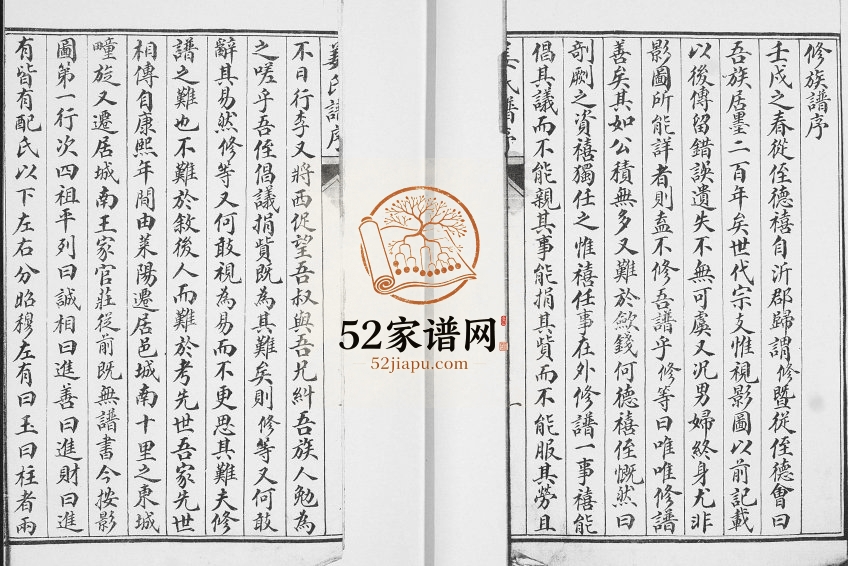 修族譜序
壬戌之春從侄德禧自沂郡歸謂修曁從侄德會曰
吾族居墨二百年矣世代宗支惟視影圖以前記載
以後傳留錯誤遺失不無可虞又況男婦終身尤非
影圖所能詳者則盍不修吾譜乎修等曰唯唯修譜
善矣其如公積無多又難於歛錢何德禧侄慨然曰
剞劂之資禧獨任之惟禧任事在外修譜一事禧能
倡其議而不能親其事能捐其貲而不能服其勞且
姜氏譜序
一
姜氏譜序
不日行李又將西促望吾叔與吾兄糾吾族人勉為
之嗟乎吾侄倡議捐貲既為其難矣則修等又何敢
辭其易然修等又何敢視為易而不更思其難夫修
譜之難也不難於敘後人而難於考先世吾家先世
相傳自康熙年間由萊陽遷居邑城南十里之東城
疃旋又遷居城南王家官莊從前既無譜書今按影
圖第一行次四祖平列曰誠相曰進善曰進財曰進
有皆有配氏以下左右分昭穆左有曰玉曰柱者兩
52家谱网
52jiapu.com